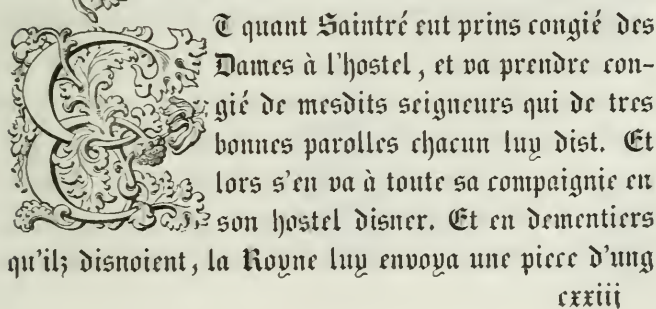 ET quant Saintré eut prins congié des
Dames à l'hostel, et va prendre con-
gié de mesdits seigneurs qui de tres
bonnes parolles chacun luy dist. Et
lors s'en va à toute sa compaignie en
son hostel disner. Et en dementiers
qu'ilz disnoient, la Royne luy envoya une piece d'ung
cxxiij